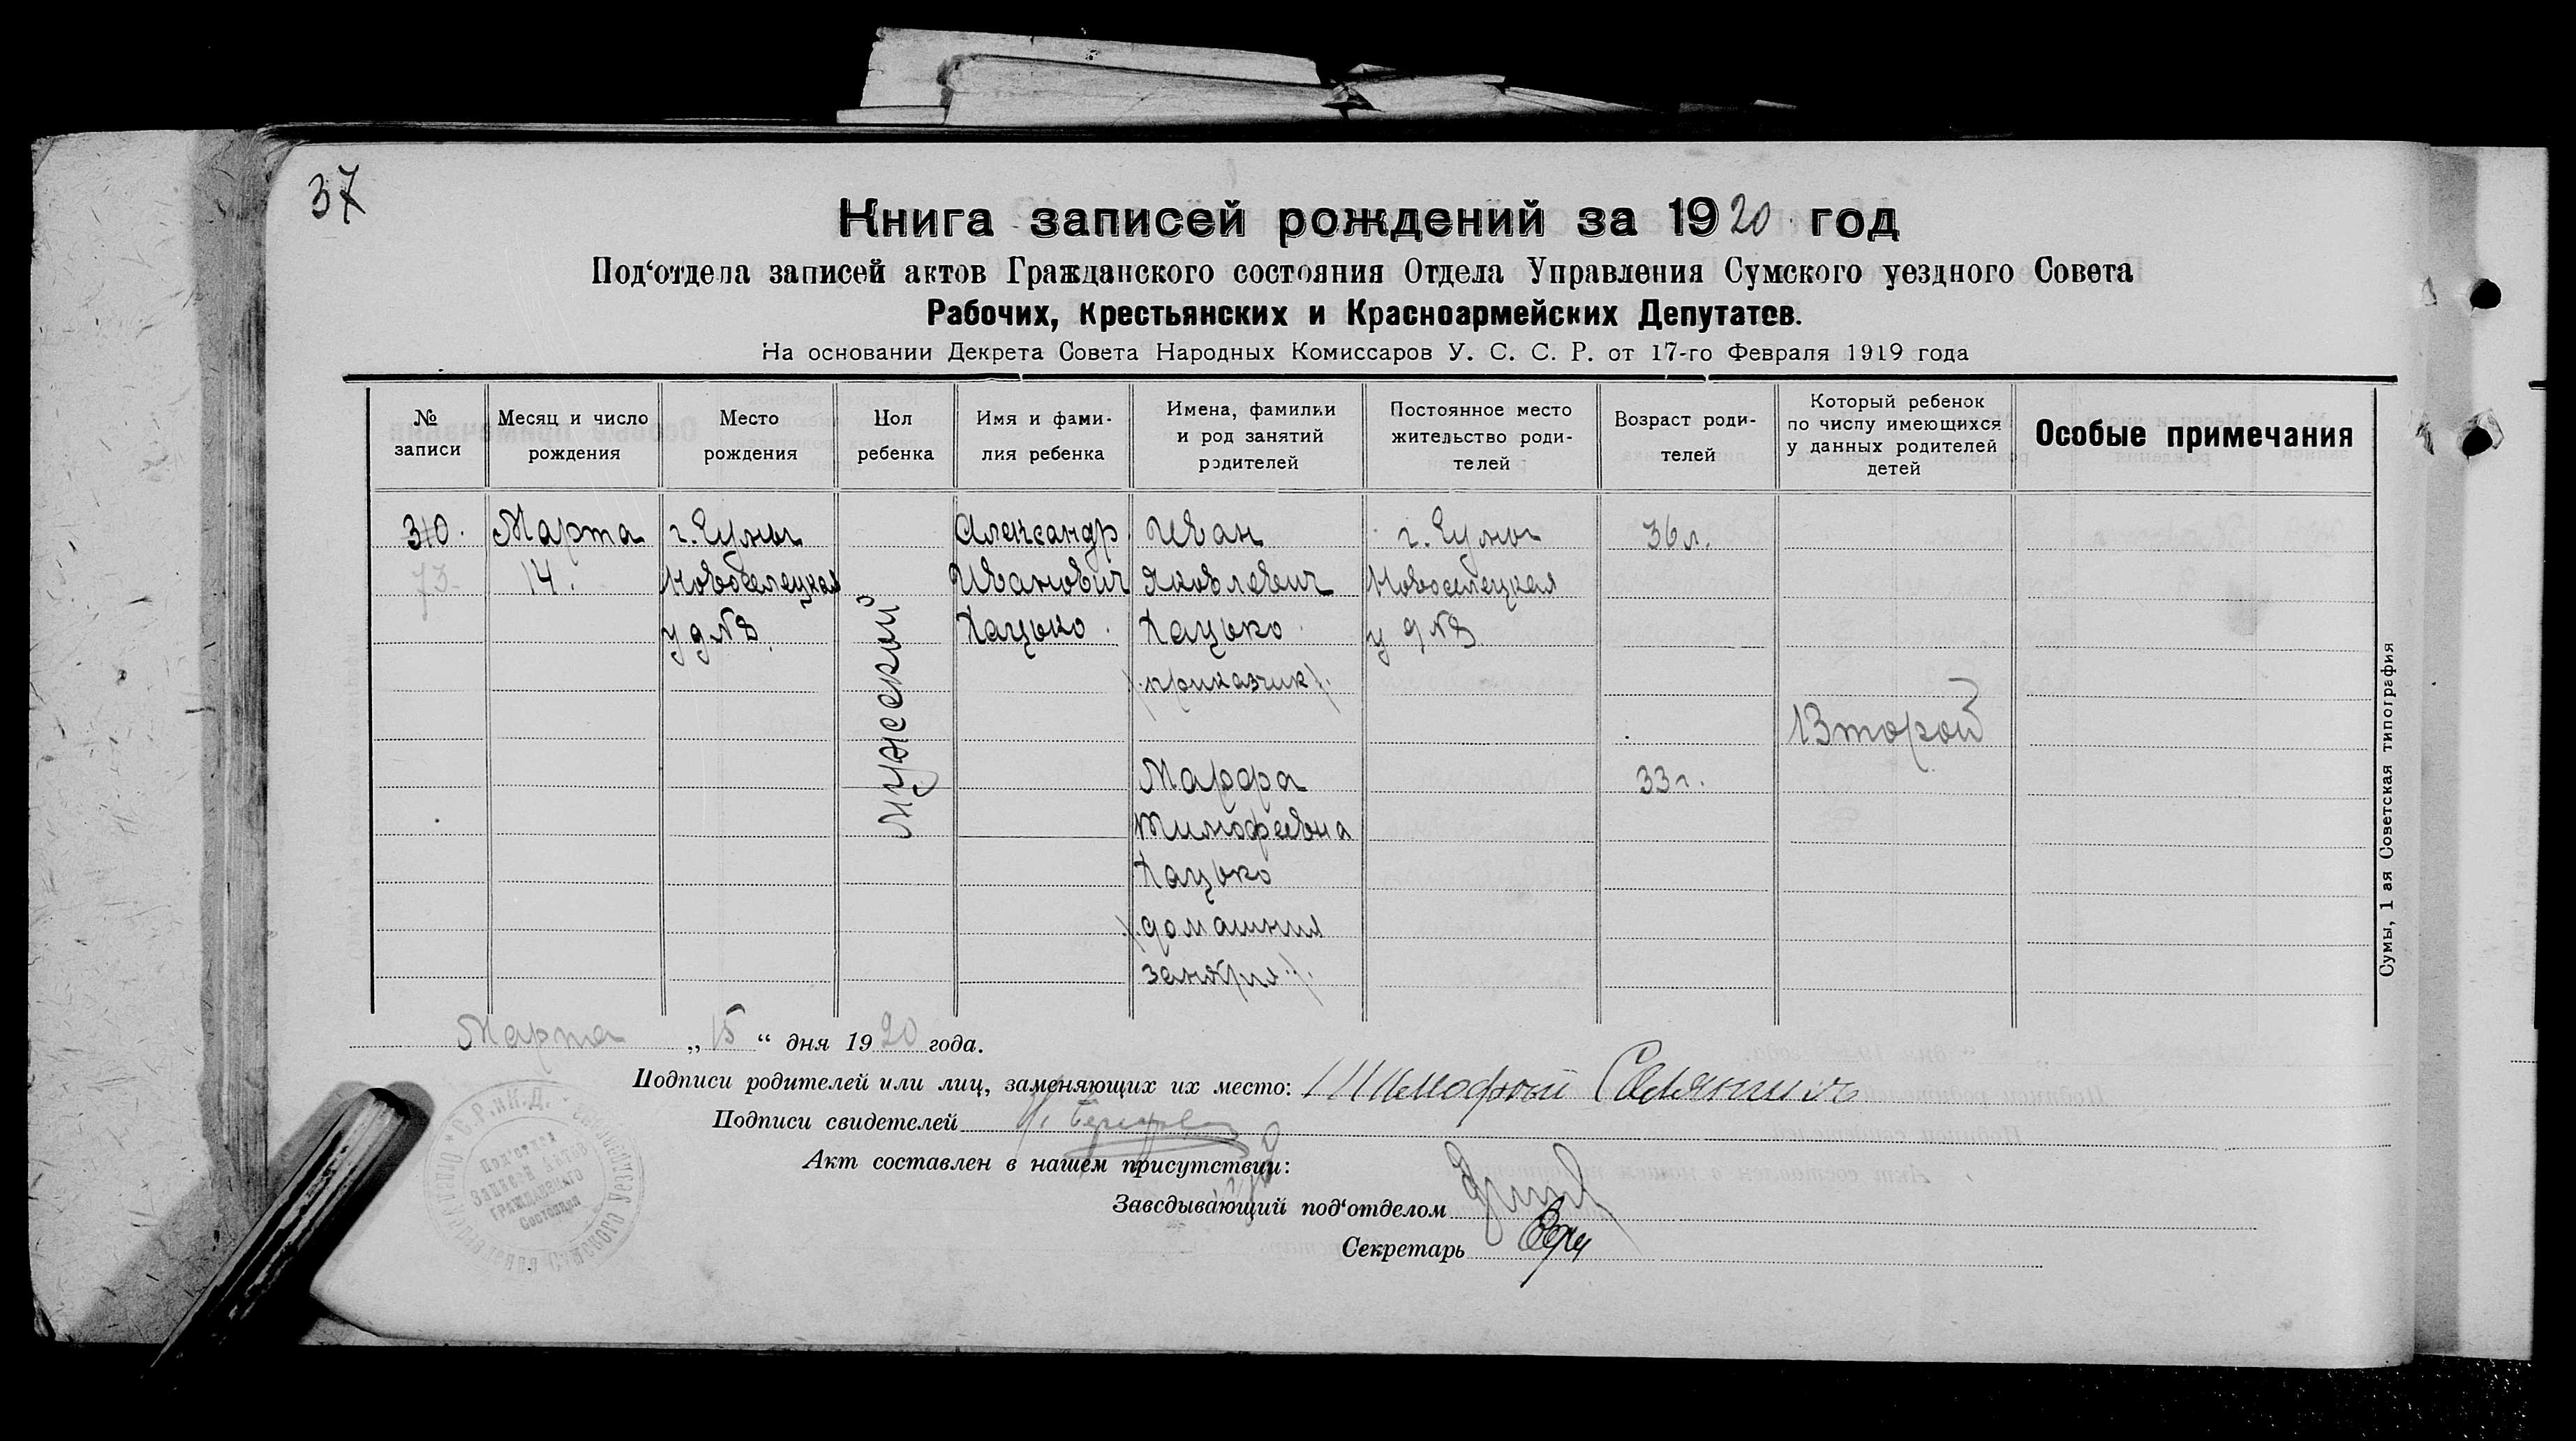 37
Книга записей рождений за 1920 год
Под‘отдела записей актов Гражданского состояния Отдела Управления Сумского уездного Совета
Рабочих, Крестьянских и Красноармейских Депутатов.
На основании Декрета Совета Народных Комиссаров У. С. С. Р. от 17-го Февраля 1919 года
№ записи
Месяц и число рождения
Место рождения
Пол ребенка
Имя и фами-
лия ребенка
Имена, фамилии
и род занятий
родителей
Постоянное место
жительство роди-
телей
Возраст роди-
телей
Который ребенок
по числу имеющихся
у данных родителей
детей
Особые примечания
310.
73
Марта
14.
г. Сумы
Новоселецкая
у д №8.
мужеский
Александр
Иванович
Кацько.
Иван
Яковлевич
Кацько.
/.приказчик/.
Марфа
Тимофеевна
Кацько
/.домашния
занятия./.
г. Сумы
Новоселецкая
у д №8
36 л.
33 г.
Второй
Сумы, 1 ая Советская типография
Марта „15“ дня 1920 года.
Подписи родителей или лиц, заменяющих их место: Тимофей
Подписи свидетелей
Акт составлен в нашем присутствии:
Заведывающий под‘отделом
Секретарь
С.Р. и К.Д.
Под‘отдел
Записей Актов
Гражданского
Состояния
Отдел Управления Сумского